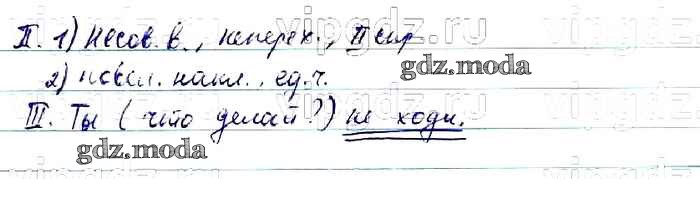 II. 1) Несов. в., неперех., II спр
gdz.moda
2) повел. накл., ед. ч.
III. Ты (что делай?) не ходи.
gdz.moda